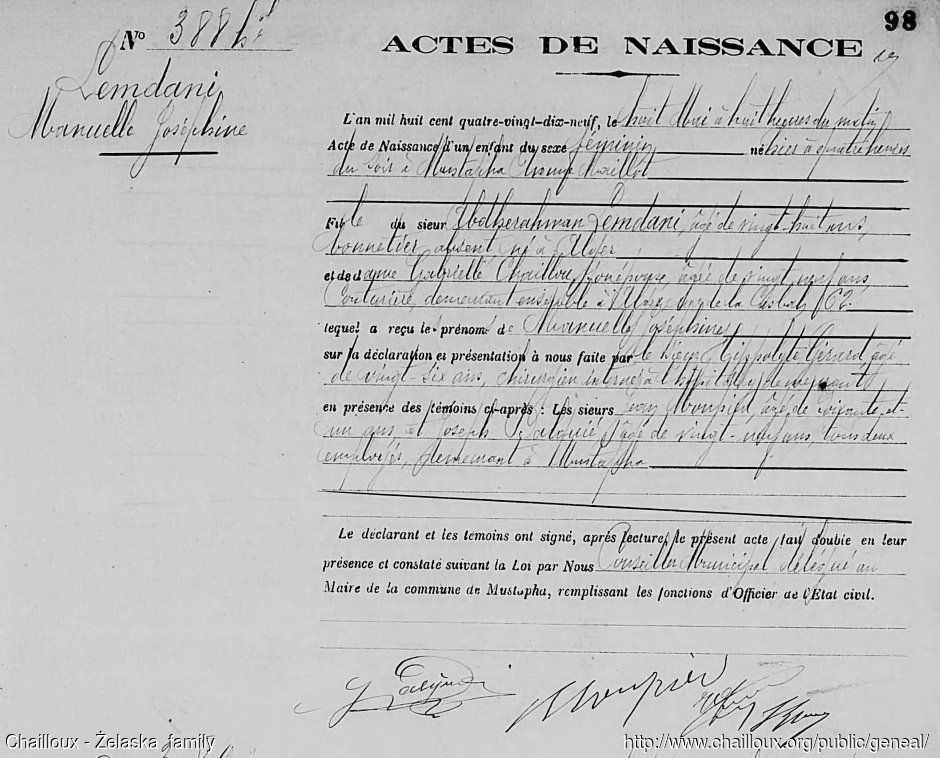 98
N° 388 bis
ACTES DE NAISSANCE
Lemdani
Manuelle Joséphine
L'an mil huit cent quatre-vingt-dix-neuf, le huit Mai à huit heures du matin
Acte de Naissance d'un enfant du sexe féminin né hier à quatre heures
du soir à Mustapha Maillot
Fille du sieur Abdherahman Lemdani, âgé de vingt-huit ans,
bonnetier, absent, né à Alger
et de dame Gabrielle Chailloux, son épouse, âgée de vingt neuf ans
Couturière, demeurant ensemble à Alger, de la Casbah 62
lequel a reçu les prénoms de Manuelle Joséphine
sur la déclaration et présentation à nous faite par le sieur Hippolyte Gérard, âgé
de vingt-six ans, chirurgien interne à l'hôpital, y demeurant
en présence des témoins ci-après : Les sieurs Moupier, âgé de soixante-et-
un ans et Joseph Galquié, âgé de vingt-neuf ans, tous deux
employés, demeurant à Mustapha
Le déclarant et les témoins ont signé, après lecture, le présent acte fait double en leur
présence et constaté suivant la Loi par Nous Conseiller Municipal délégué au
Maire de la commune de Mustapha, remplissant les fonctions d'Officier de l'État civil.
Moupier
Chailloux - Żelaska family
http://www.chailloux.org/public/geneal/